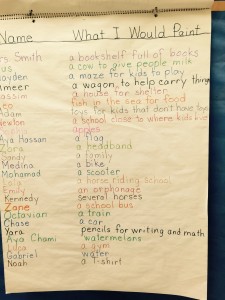 Name What I Would Paint
rs Smith a bookshelf full of books
us a cow to give people milk
ayden a maze for kids to play
meer a wagon to help carry things
assim a house for shelter
eo fish in the sea for food
Adam toys for kids that don't have toys
Newton a school close to where kids live
apples
Aya Hassan a flag
Zara a headband
Sandy a family
Medina a bike
Mohamad a scooter
Laila a horse riding school
Emily an orphanage
Kennedy several horses
Zane a school bus
Octavian a train
Chase a car
Yara pencils for writing and math
Aya Chami watermelons
a gym
Gabriel water
Noah a t-shirt